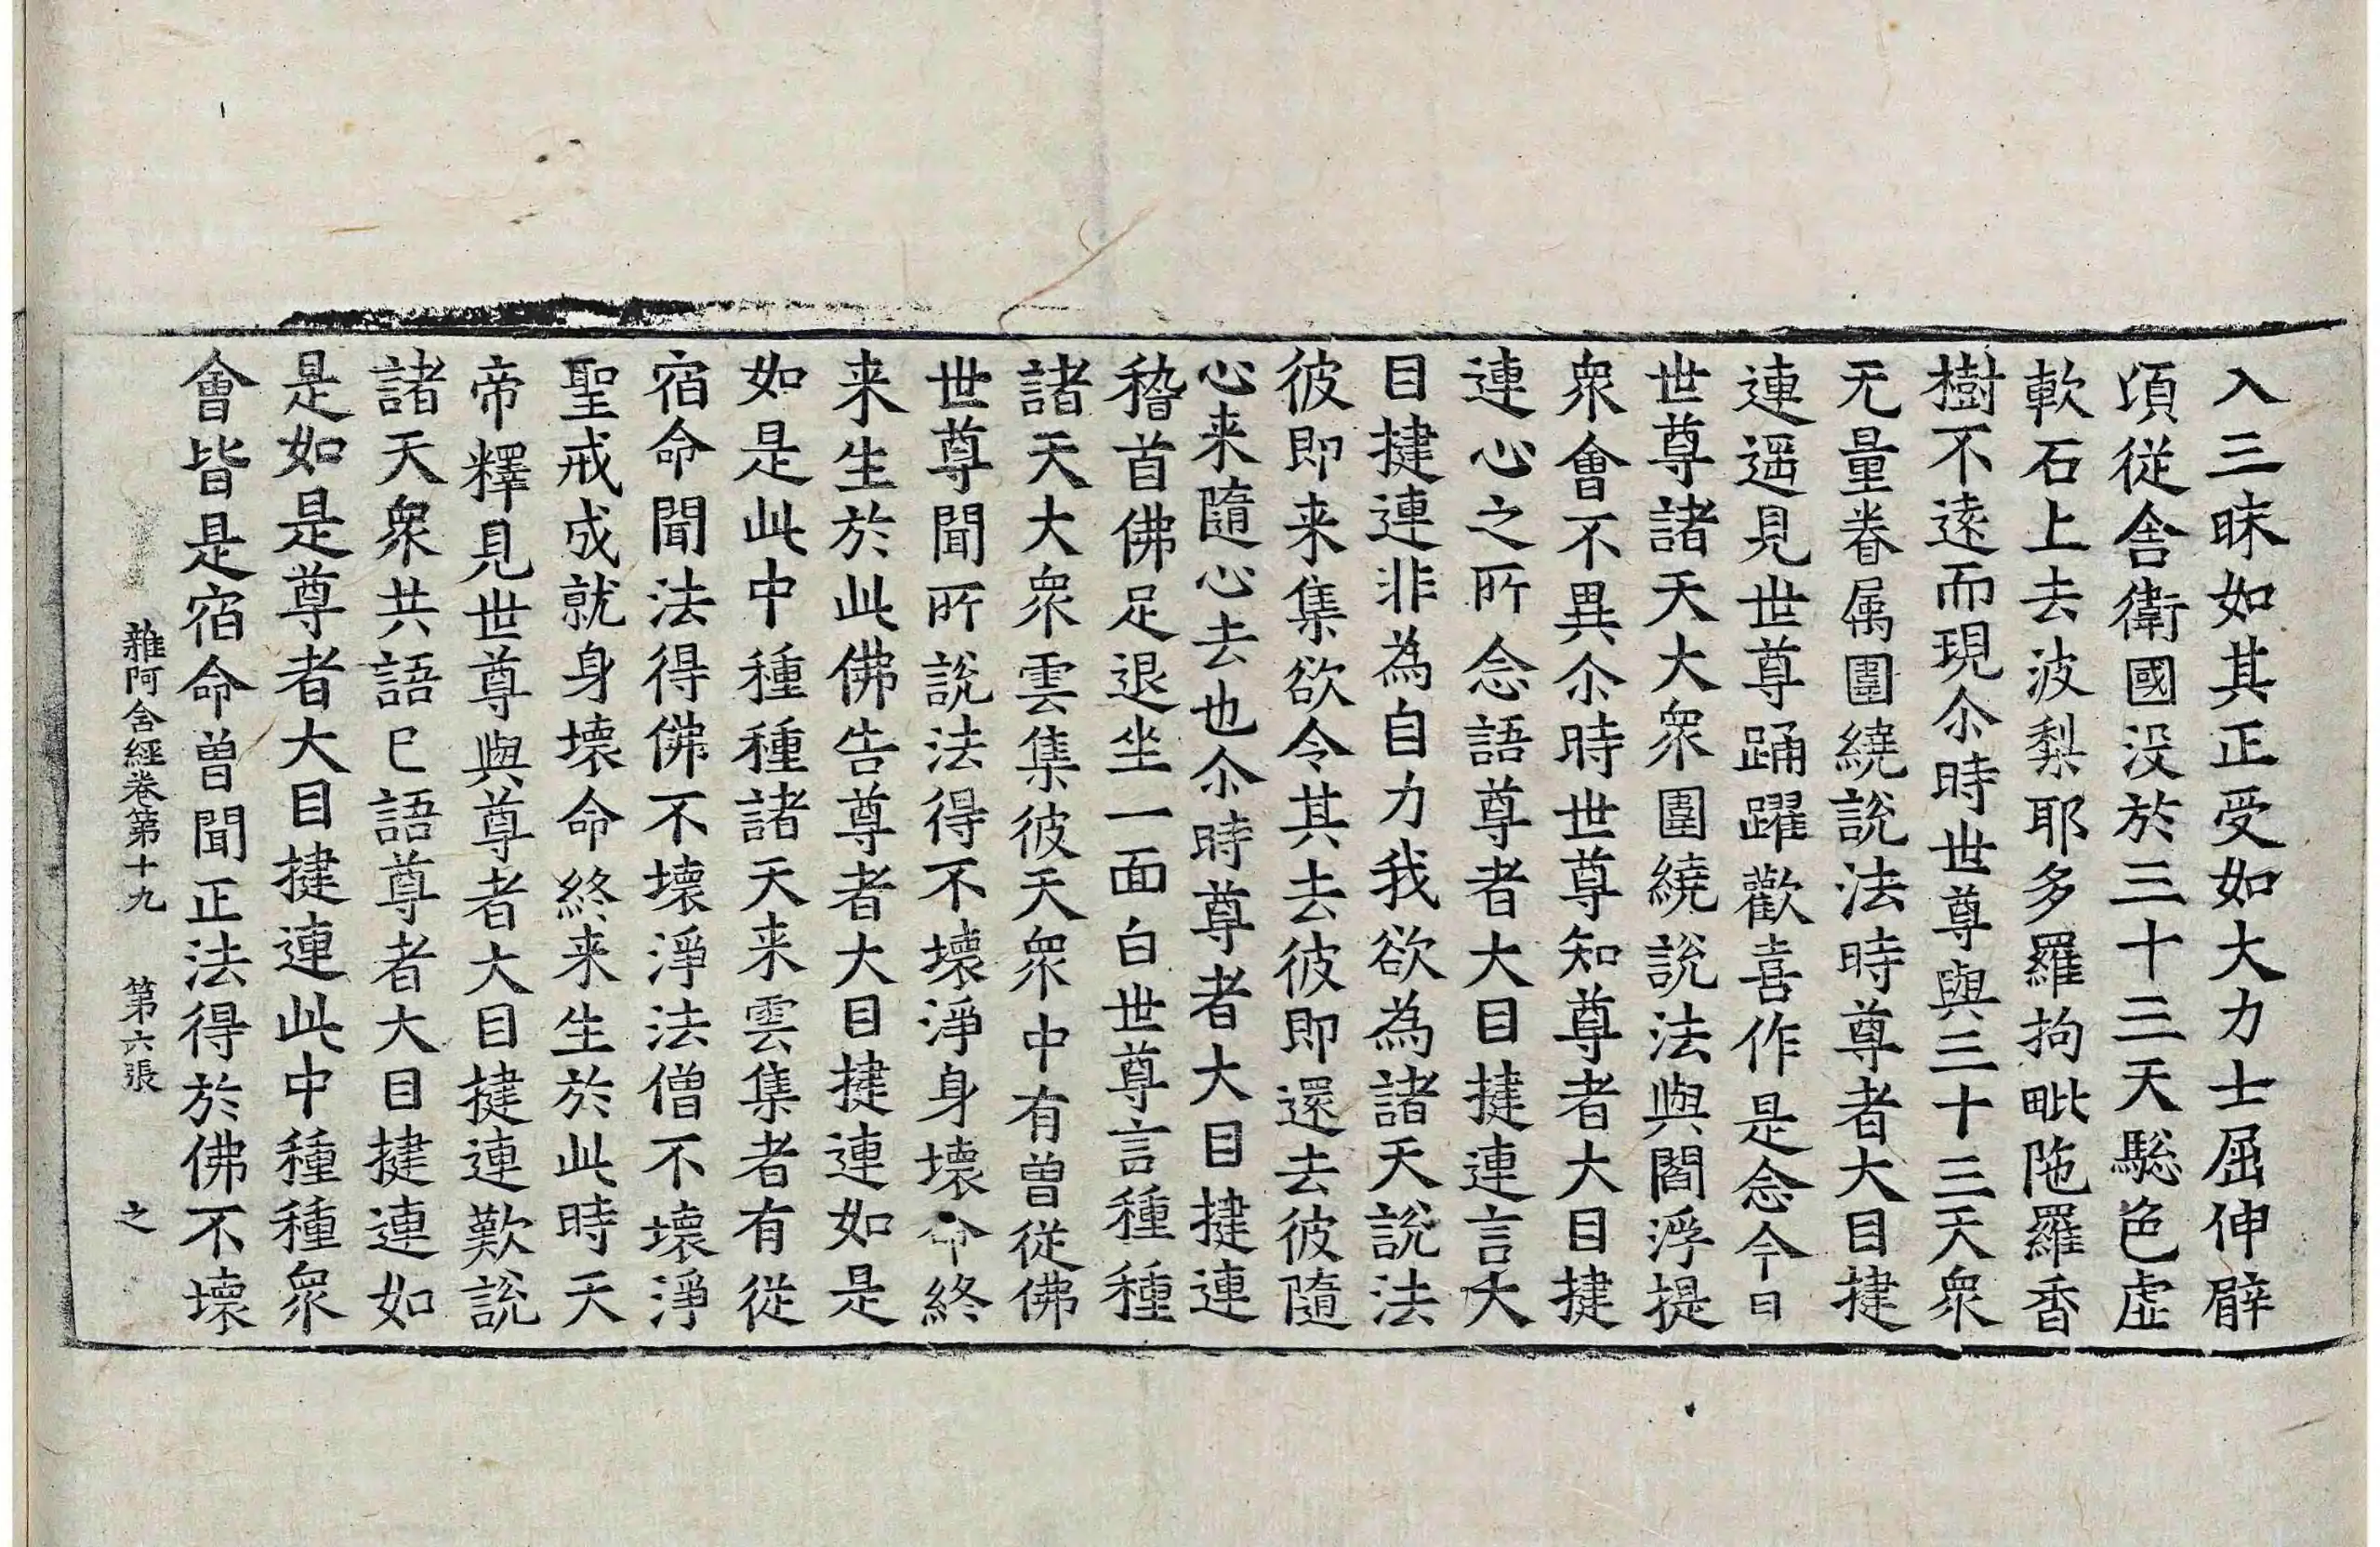 入三昧如其正受如大力士屈伸臂
頃從舍衛國没於三十三天驄色虛
軟石上去波梨耶多羅拘毗陁羅香
樹不遠而現尒時世尊與三十三天衆
无量眷属圍繞說法時尊者大目揵
連遥見世尊踊躍歡喜作是念今日
世尊諸天大衆圍繞說法與閻浮提
衆會不異尒時世尊知尊者大目揵
連心之所念語尊者大目揵連言大
目揵連非為自力我欲為諸天說法
彼即来集欲令其去彼即還去彼隨
心来隨心去也尒時尊者大目揵連
稽首佛足退坐一面白世尊言種種
諸天大衆雲集彼天衆中有曽從佛
世尊聞所說法得不壞淨身壞命終
来生於此佛告尊者大目揵連如是
如是此中種種諸天来雲集者有從
宿命聞法得佛不壞淨法僧不壞淨
聖戒成就身壞命終来生於此時天
帝釋見世尊與尊者大目揵連歎說
諸天衆共語已語尊者大目揵連如
是如是尊者大目揵連此中種種衆
會皆是宿命曽聞正法得於佛不壞
雜阿含經卷第十九 第六張 之